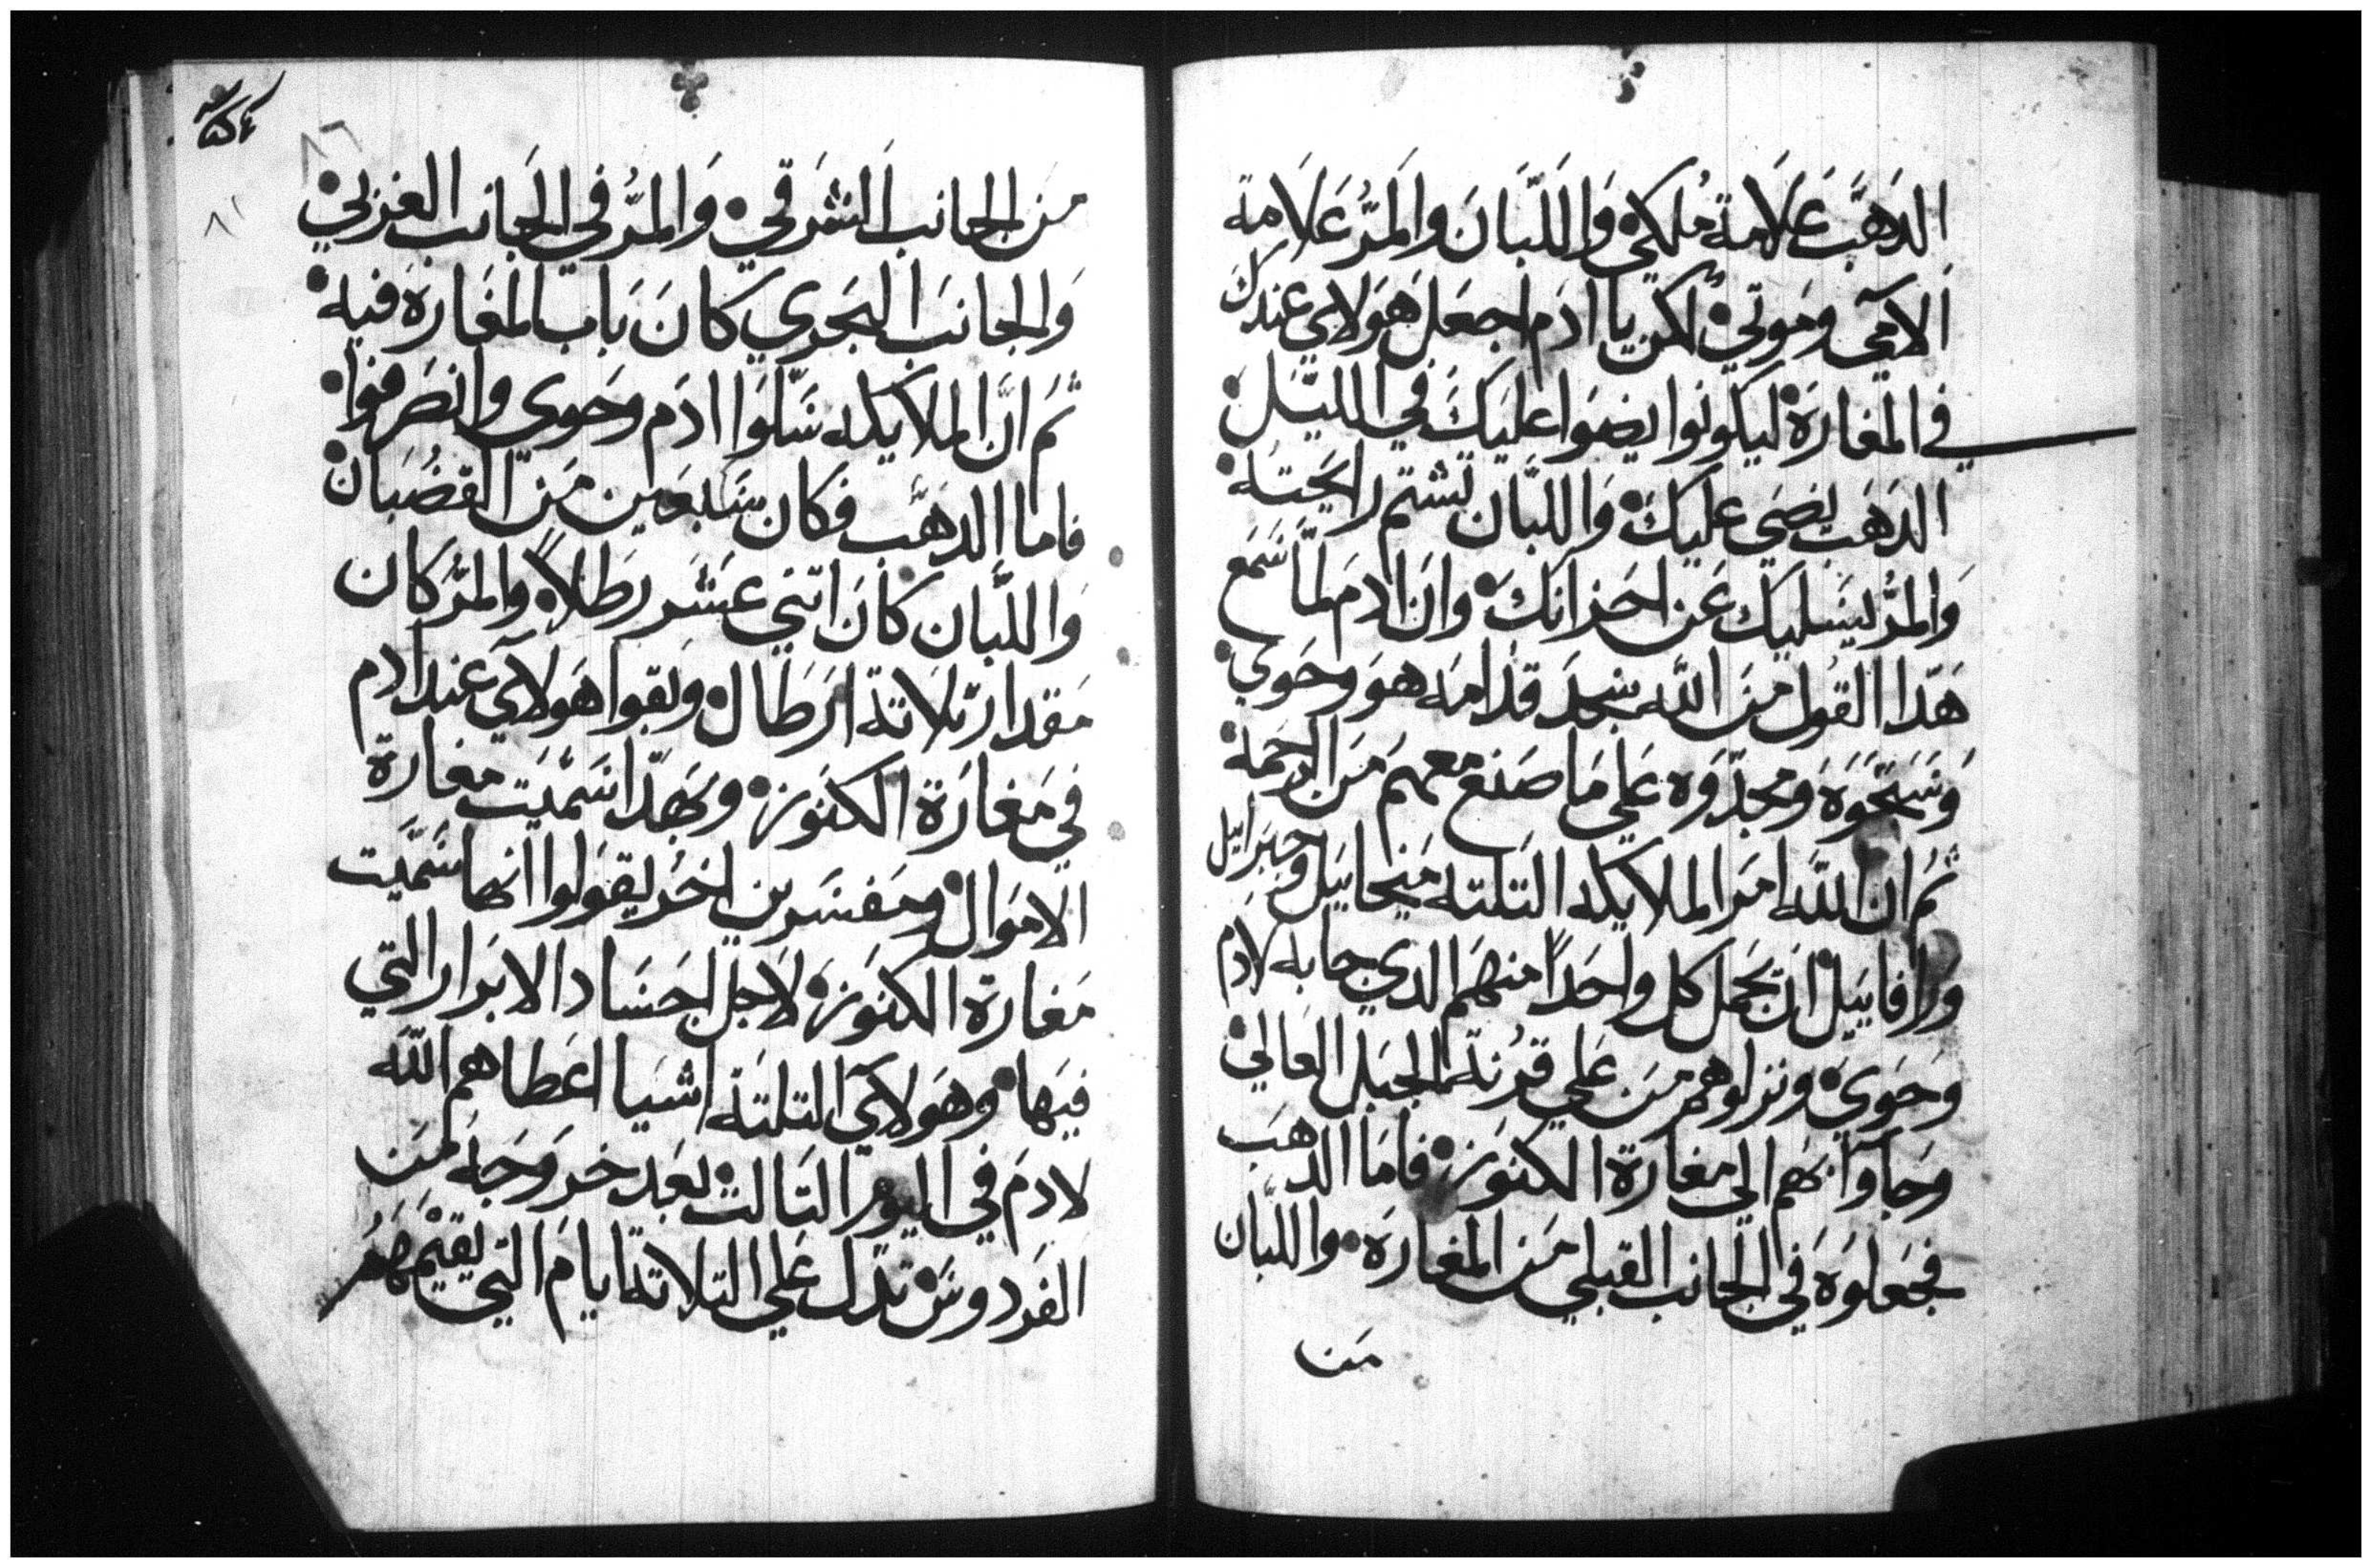 الدَهَب عَلَامة مُلكي۰ وَاللبَّانَ وَالمَرُّ عَلَامة
اَلاَمي ومَوتي۰ لكن يا ادَم اجعَل هَولاي عندك
في المغارَة۰ ليكونوا يضوَا عليَكَ في الليَل۰
الدَهَب يضَي عليكَ۰ وَاللبَّان تشتم رايحَته۰
وَالمرُّ يسَليك عَن احزانك۰ وانَ ادمَ لمَّا سَمع
هَدا القول منَ اللَّه سجدَ قدامَه هوَ وحَوي۰
وَسَبَحَوَه وَمجدَوَه عَلي مَا صَنع معهمَ مَن الرحَمة۰
ثم ان اللَّه امَر الملايكه التلته مَيخاييَل وجبَراييل
وَرافاييَل۰ ان يحَمل كل واحَداً منهَم الدي جا به لادَم
وَحَوي۰ ونزلوهم مَن عَلي قرُنة الجبَل العَالي۰
وَجاوآ بهَم الي مغارة الكنوَز۰ فامَا الدهَب
فجَعلوَه في الجانب القبلي مَن المغارَة۰ واللبَّان
مَن
٨٦
٨١
مَن الجانب الشرَقي۰ وَالمرُّ في الجَانب الغَربي۰
وَالجانبَ البحَري كانَ بَاب المغَارَة فيه۰
ثمَ انَّ الملايكه سَلّوَا ادَم وحَوي وانصَرفوا۰
فاما الدهَب فكان سَبعَين مَن القضُبَان۰
وَاللبَّان كانَ اتني عَشَر رطَلاً۰ والمرُّ كان
مَقدار تلَاتة ارَطَال۰ وبَقوا هَولايَ عند ادم
في مَغارَة الكنوَز۰ وبهَدَا سَميَت مغارة
الامَوال۰ ومَفسَرين اخرُ يقوَلوا انها سَميَّت
مَغارة الكنوَز۰ لاَجل اجَسَاد الابَرار التي
فيَها۰ وهَولايَ التلتَة اشيا اعَطاهم اللَّه
لادمَ في اليوَم التَالت۰ بعَد خروَجَه مَن
الفَردوسَ۰ تدَل عَلي التلاتة ايامَ التي يقيَمهَم